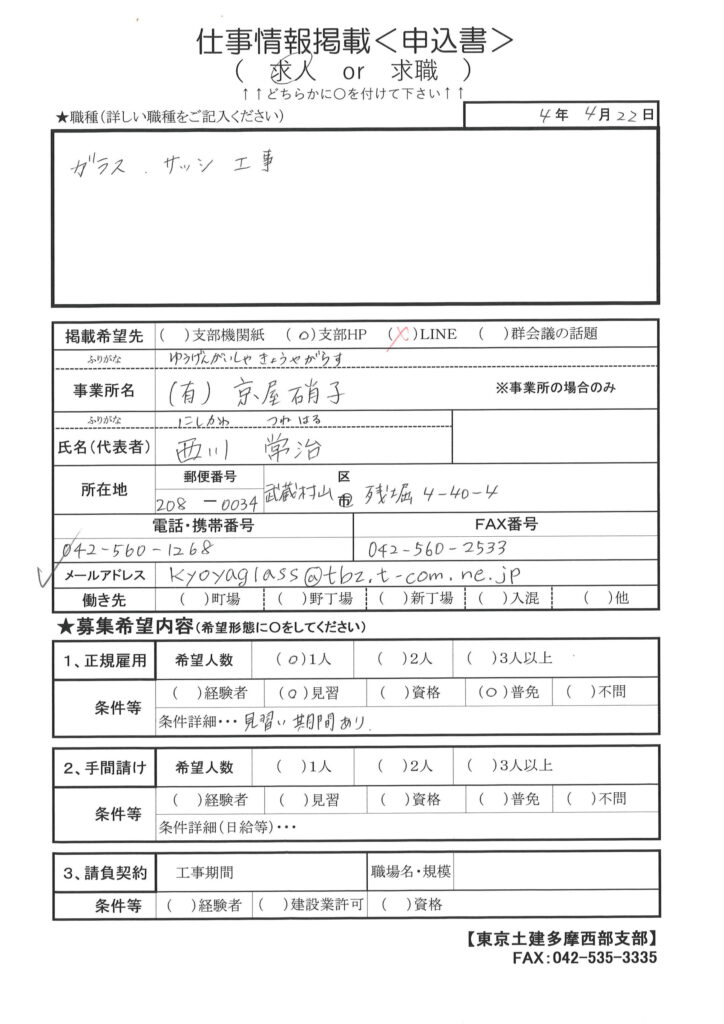 仕事情報掲載＜申込書＞
（ 求人 or 求職 ）
↑↑どちらかに○を付けて下さい↑↑
★職種（詳しい職種をご記入ください） 4年 4月22日
ガラス．サッシ工事
掲載希望先 （ ）支部機関紙 （○）支部HP （×）LINE （ ）群会議の話題
ふりがな ゆうげんがいしゃ きょうやがらす
事業所名 （有）京屋硝子 ※事業所の場合のみ
ふりがな にしかわ つねはる
氏名（代表者） 西川 常治
所在地 郵便番号 208－0034 武蔵村山 区 市 残堀 4-40-4
電話・携帯番号 FAX番号
042-560-1268 042-560-2533
メールアドレス kyoyaglass@tbz.t-com.ne.jp
働き先 （ ）町場 （ ）野丁場 （ ）新丁場 （ ）入混 （ ）他
★募集希望内容（希望形態に○をしてください）
1、正規雇用 希望人数 （○）1人 （ ）2人 （ ）3人以上
条件等 （ ）経験者 （○）見習 （ ）資格 （○）普免 （ ）不問
条件詳細・・・見習い期間あり．
2、手間請け 希望人数 （ ）1人 （ ）2人 （ ）3人以上
条件等 （ ）経験者 （ ）見習 （ ）資格 （ ）普免 （ ）不問
条件詳細（日給等）・・・
3、請負契約 工事期間 職場名・規模
条件等 （ ）経験者 （ ）建設業許可 （ ）資格
【東京土建多摩西部支部】
FAX：042-535-3335